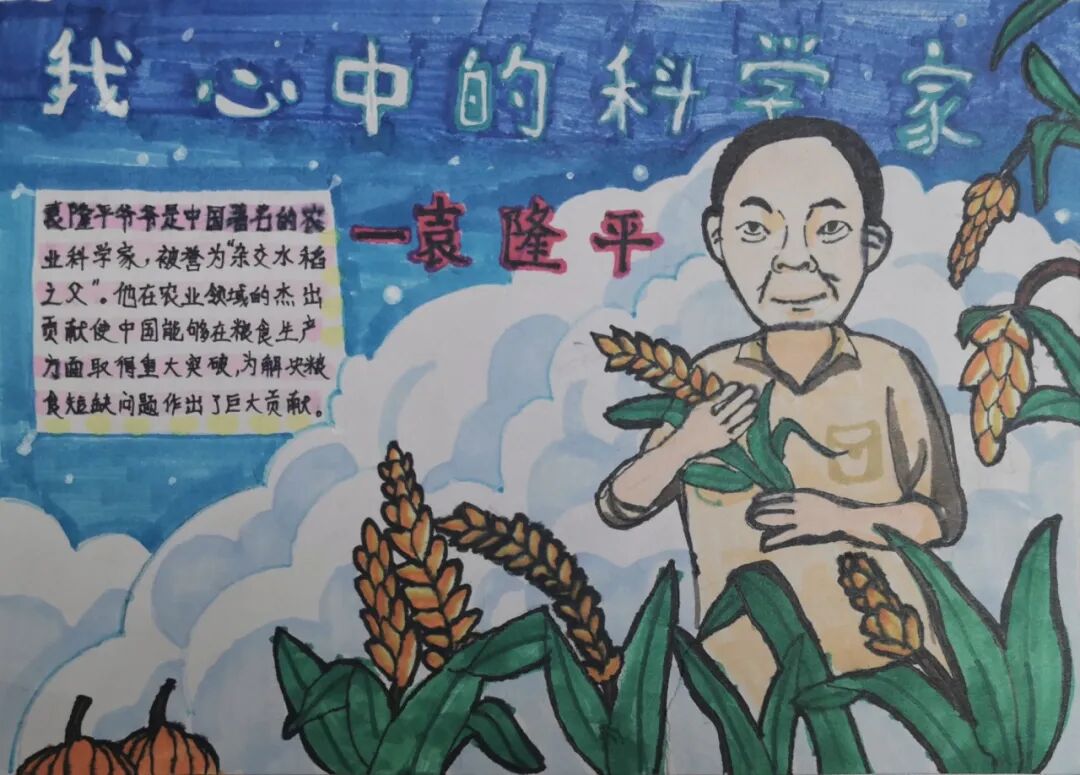 我心中的科学家
一袁隆平
袁隆平爷爷是中国著名的农
业科学家，被誉为“杂交水稻
之父”。他在农业领域的杰出
贡献使中国能够在粮食生产
方面取得重大突破，为解决粮
食短缺问题作出了巨大贡献。